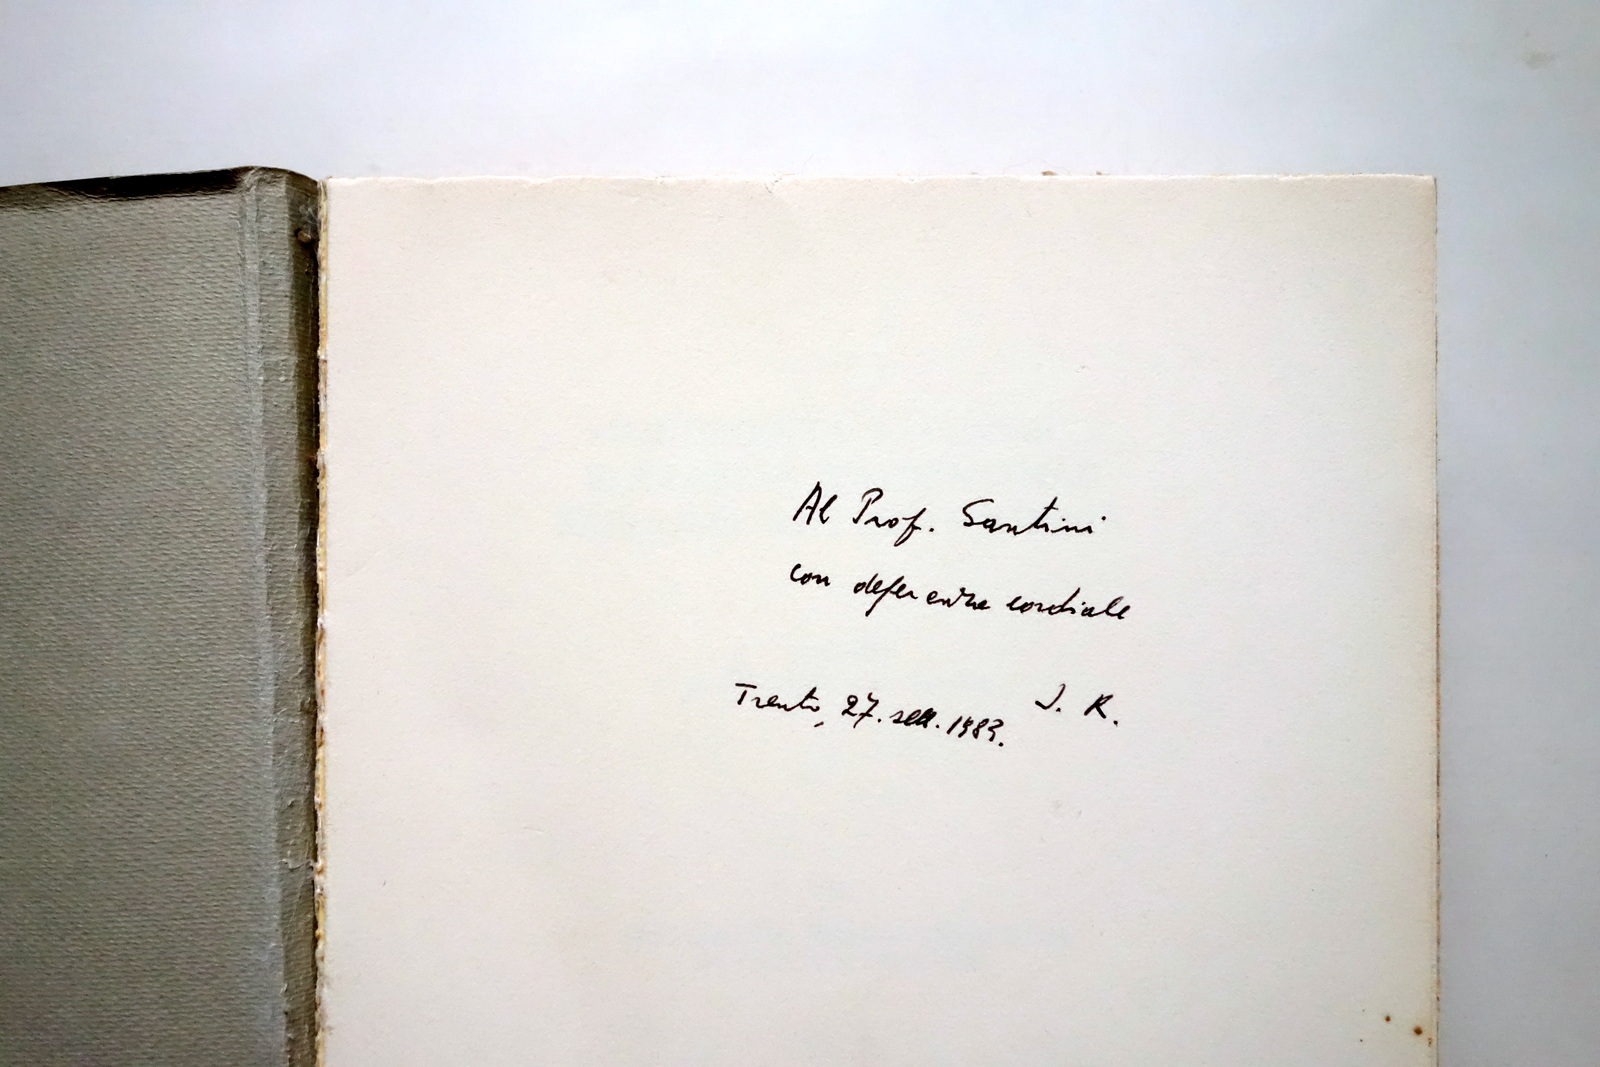 Al Prof. Santini
con deferenza cordiale
J. R.
Trento, 27. sett. 1983.